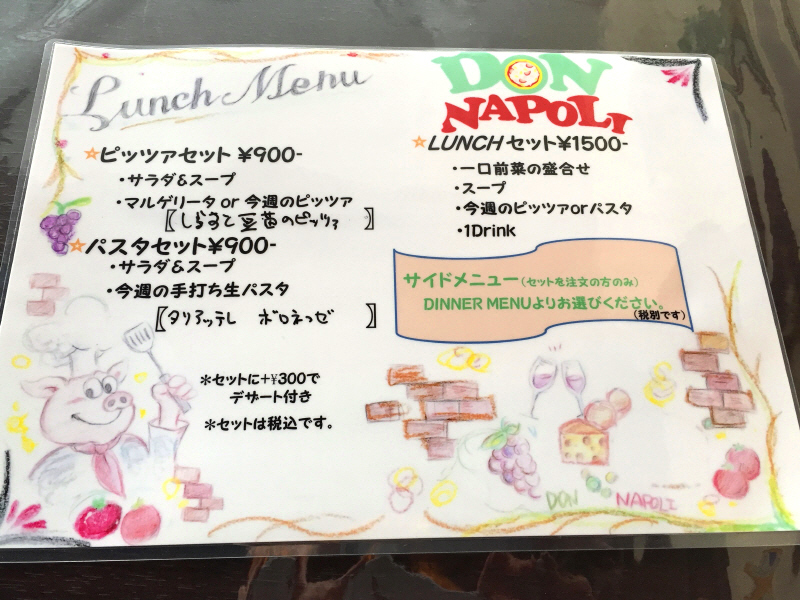 Lunch Menu
☆ピッツァセット ¥900-
・サラダ&スープ
・マルゲリータ or 今週のピッツァ
〖しらすと豆苗のピッツァ〗
☆パスタセット¥900-
・サラダ&スープ
・今週の手打ち生パスタ
〖タリアッテレ ボロネーゼ〗
＊セットに+¥300で
デザート付き
＊セットは税込です。
DON
NAPOLI
☆LUNCH セット¥1500-
・一口前菜の盛合せ
・スープ
・今週のピッツァorパスタ
・1Drink
サイドメニュー(セットを注文の方のみ)
DINNER MENUよりお選びください。
(税別です)
DON NAPOLI